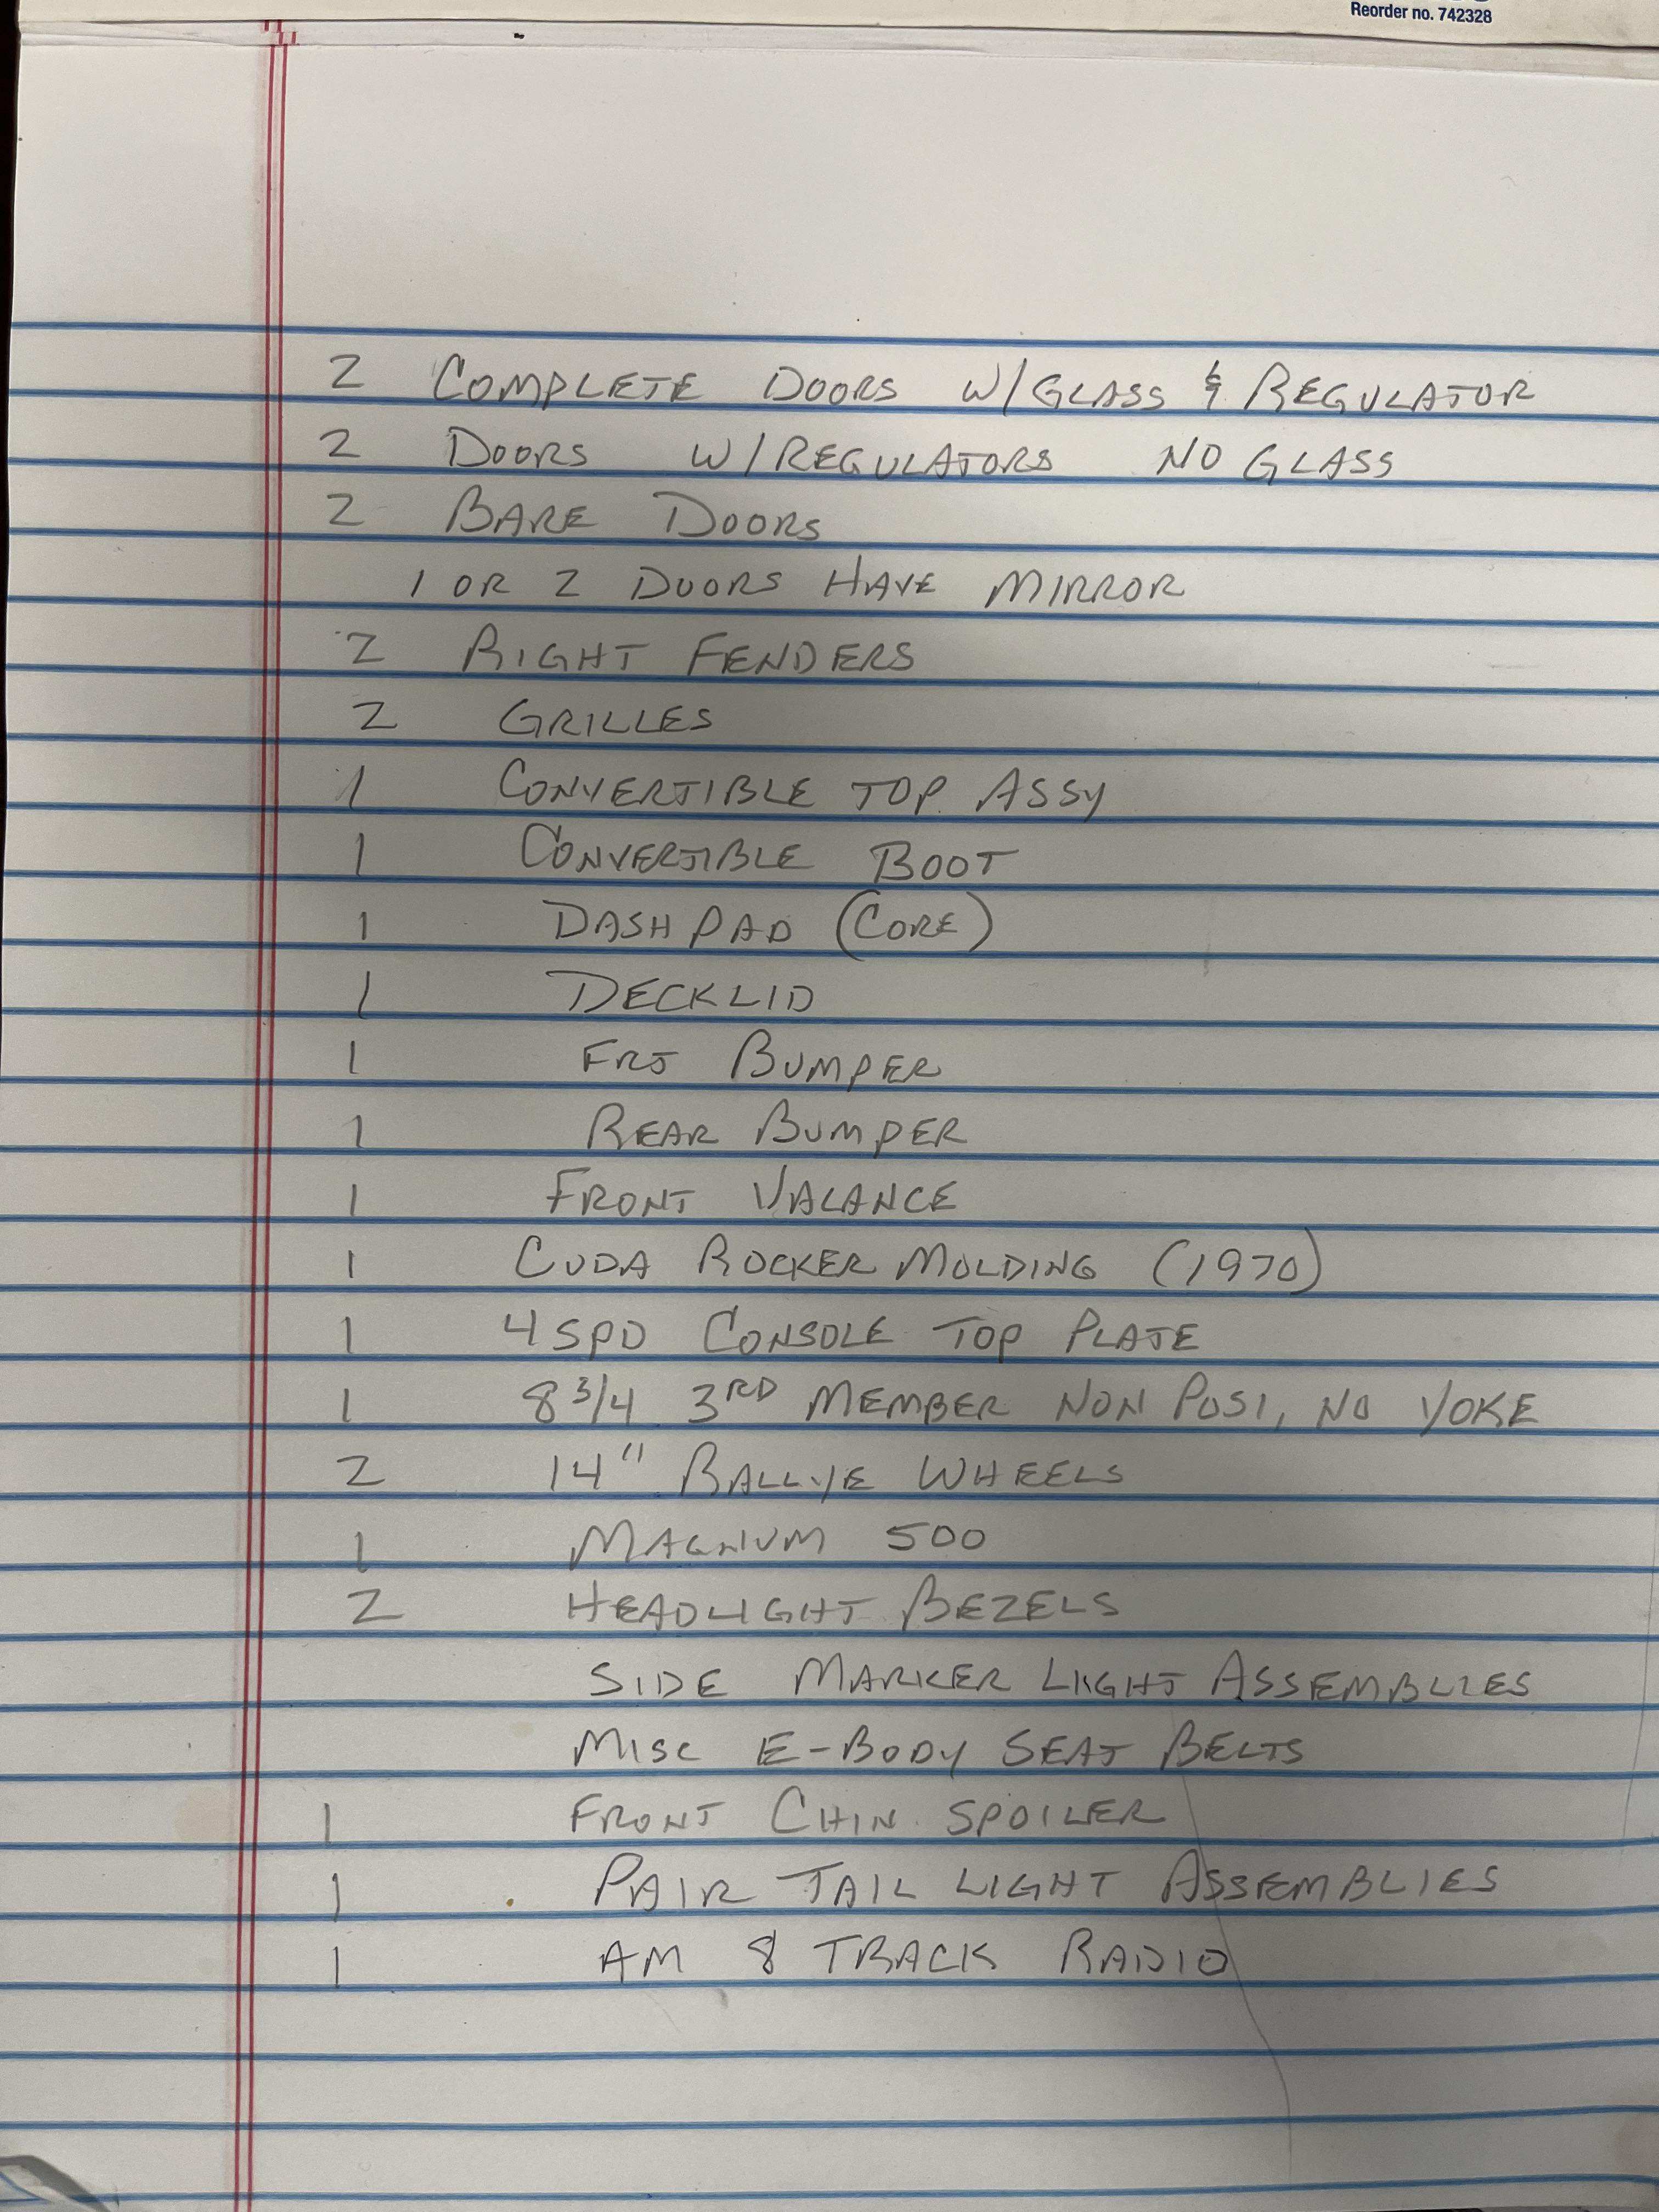 Reorder no. 742328
2 COMPLETE DOORS W/GLASS & REGULATOR
2 DOORS W/REGULATORS NO GLASS
2 BARE DOORS
1 OR 2 DOORS HAVE MIRROR
2 RIGHT FENDERS
2 GRILLES
1 CONVERTIBLE TOP ASSY
1 CONVERTIBLE BOOT
1 DASH PAD (CORE)
1 DECKLID
1 FRT BUMPER
1 REAR BUMPER
1 FRONT VALANCE
1 CUDA ROCKER MOLDING (1970)
1 4 SPD CONSOLE TOP PLATE
1 8 3/4 3RD MEMBER NON POSI, NO YOKE
2 14" RALLYE WHEELS
1 MAGNUM 500
2 HEADLIGHT BEZELS
SIDE MARKER LIGHT ASSEMBLIES
MISC E-BODY SEAT BELTS
1 FRONT CHIN SPOILER
1 PAIR TAIL LIGHT ASSEMBLIES
1 AM 8 TRACK RADIO